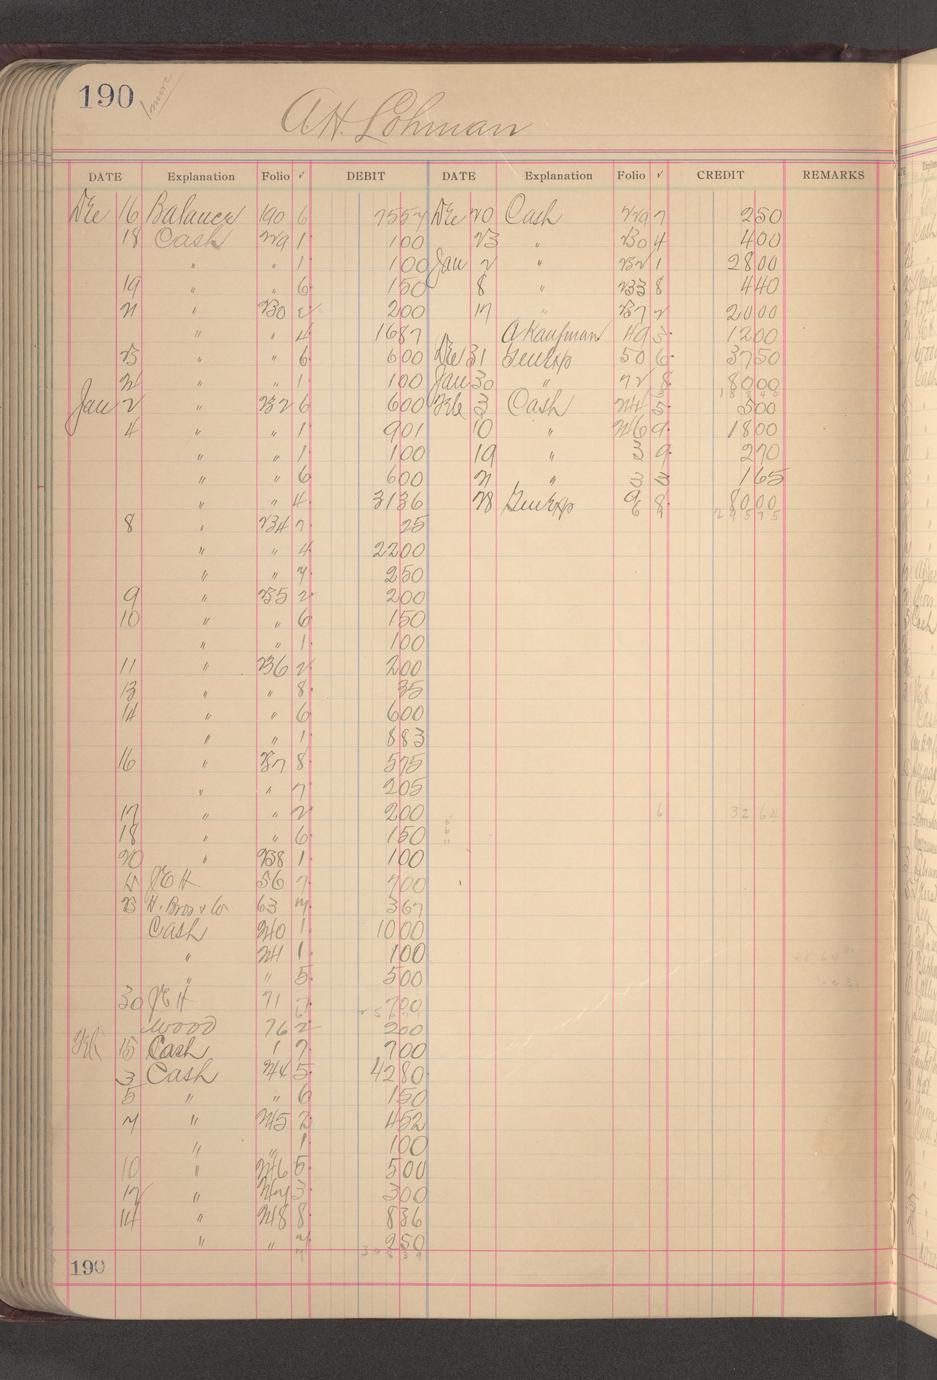 190
1 more
A H. Lohman
DATE Explanation Folio ✓ DEBIT DATE Explanation Folio ✓ CREDIT REMARKS
Dec 16 Balance 190 6 7557 Dec 20 Cash 229 7 250
18 Cash 229 1 100 23 " 230 4 400
" " 1 100 Jan 2 " 232 1 2800
19 " " 6 150 8 " 233 8 440
21 " 230 2 200 17 " 237 2 2000
" " 4 1687 A Kaufman 49 5 1200
23 " " 6 600 Dec 31 GenExp 50 6 3750
" " 1 100 Jan 30 " 72 8 8000
Jan 2 " 232 6 600 Feb 3 Cash 244 5 500
4 " " 1 901 10 " 246 9 1800
" " 1 100 19 " 3 9 270
" " 6 600 21 " 3 165
" " 4 3136 28 GenExp 9 8 8000
8 " 234 7 25 6 9 29575
" " 4 2200
" " 7 250
9 " 235 2 200
10 " " 6 150
" " 1 100
11 " 236 2 200
13 " " 8 35
14 " " 6 600
" " 1 883
16 " 237 8 575
" " 7 205
17 " " 2 200 6 32 64
18 " " 6 150
20 " 238 1 100
JEH 56 7 700
23 H. Bros & Co 63 367
Cash 240 1 1000
" 241 1 100
" " 5 500
30 JEH 71 700
Wood 76 2 200
Feb 15 Cash 1 7 700
3 Cash 244 5 4280
5 " " 6 150
7 " 245 2 452
" " 1 100
10 " 246 5 500
12 " 247 3 300
14 " 248 8 836
" " 250
190